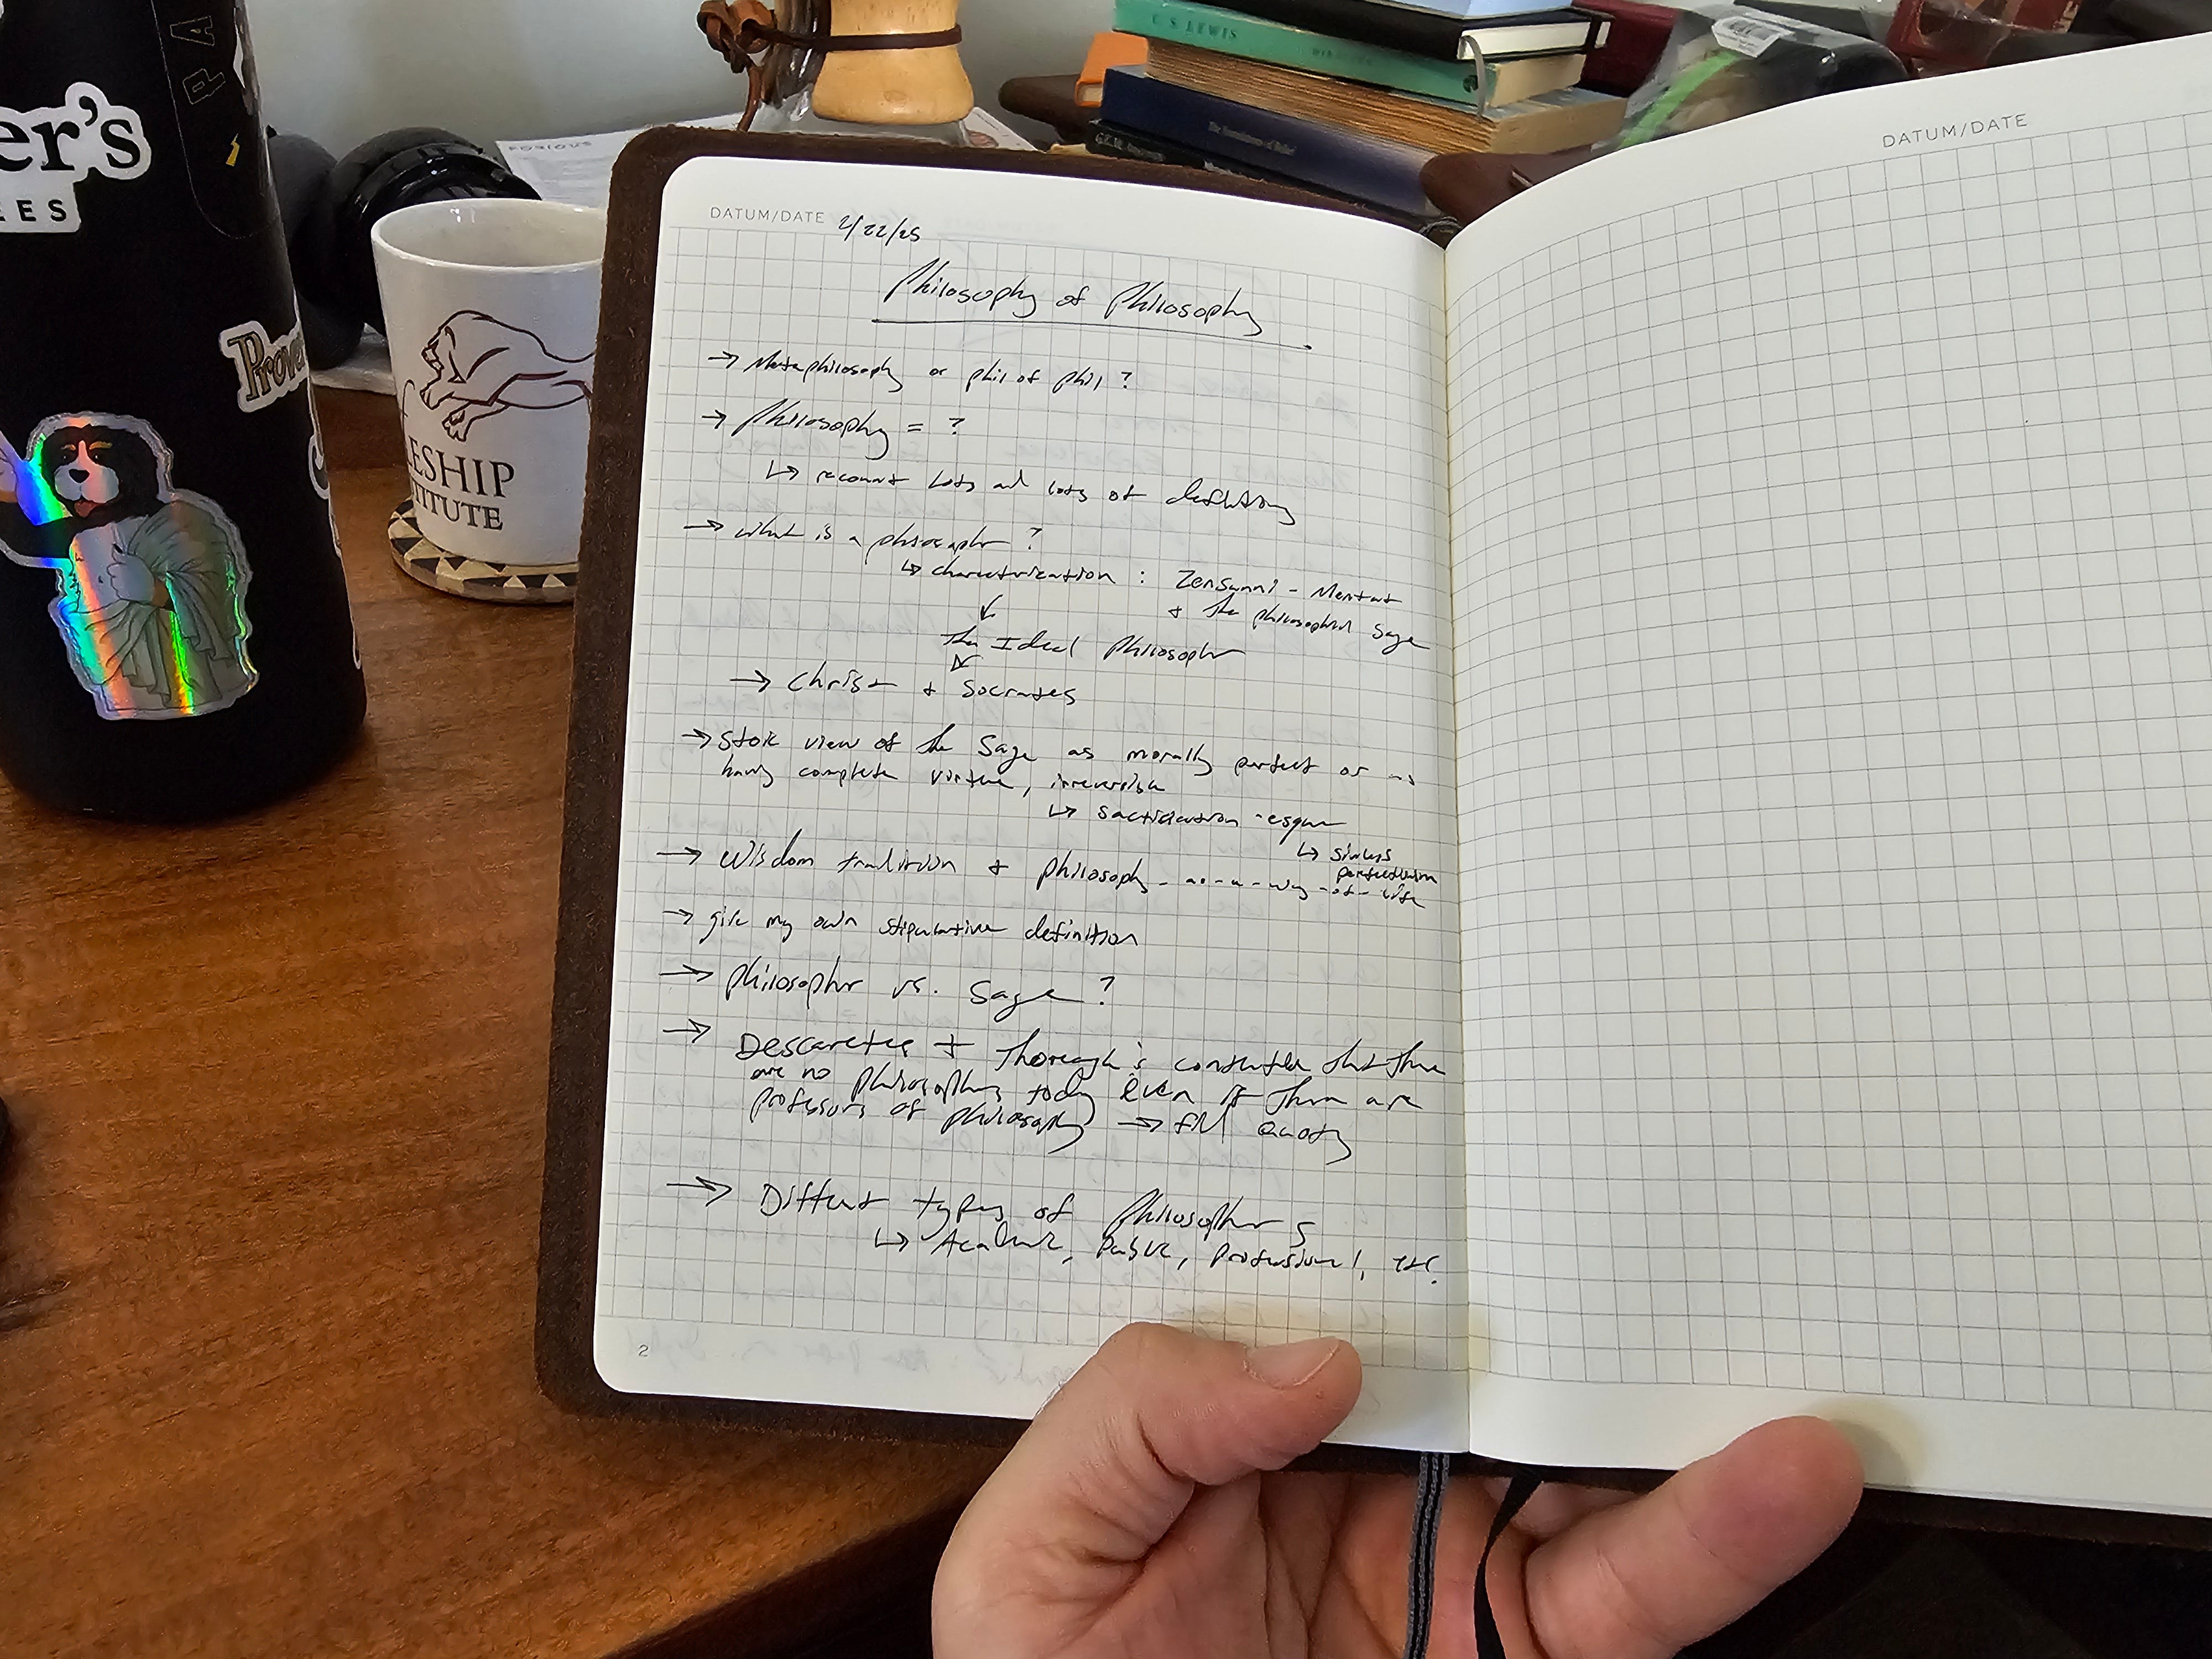 er's
EES
PA
Prove
ESHIP
TITUTE
C. S. LEWIS
DATUM/DATE 2/22/25
Philosophy of Philosophy
→ Metaphilosophy or phil of phil ?
→ Philosophy = ?
↳ recount lots and lots of definitions
→ What is a philosopher ?
↳ characterization : Zensunni - Mentat
+ the philosopher Sage
The Ideal Philosopher
→ Christ + Socrates
→ Stoic view of the Sage as morally perfect or as
having complete virtue, irreversible
↳ sanctification-esque
↳ sinless
perfectionism
→ Wisdom tradition + philosophy-as-a-way-of-life
→ give my own stipulative definition
→ philosopher vs. Sage ?
→ Descartes + Thoreau's contention that there
are no philosophers today even if there are
professors of philosophy → find quotes
→ Different types of Philosophers
↳ Academic, Public, Professional, etc.
2
DATUM/DATE